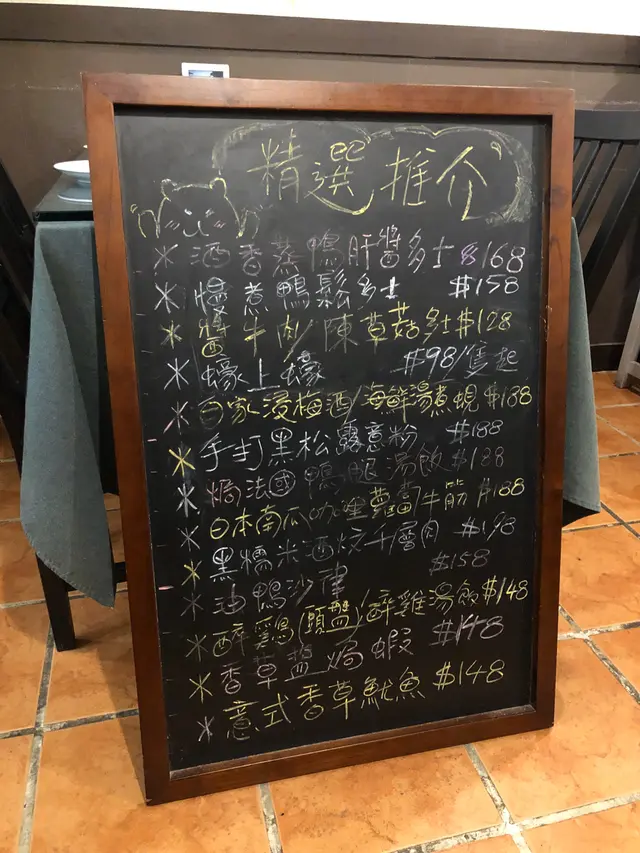 精選推介
* 酒香蒸鴨肝醬多士 $168
* 慢煮鴨鬆多士 $158
* 醬牛肉/陳草菇多士 $128
* 蠔上蠔 $98/隻起
* 自家浸梅酒/海鮮湯煮蜆 $188
* 手打黑松露意粉 $188
* 焗法國鴨腿湯飯 $188
* 日本南瓜咖喱蘿蔔牛筋 $188
* 黑糯米酒炆千層肉 $198
* 油鴨沙律 $158
* 醉雞(頭盤)/醉雞湯飯 $148
* 香草鹽焗蝦 $148
* 意式香草魷魚 $148